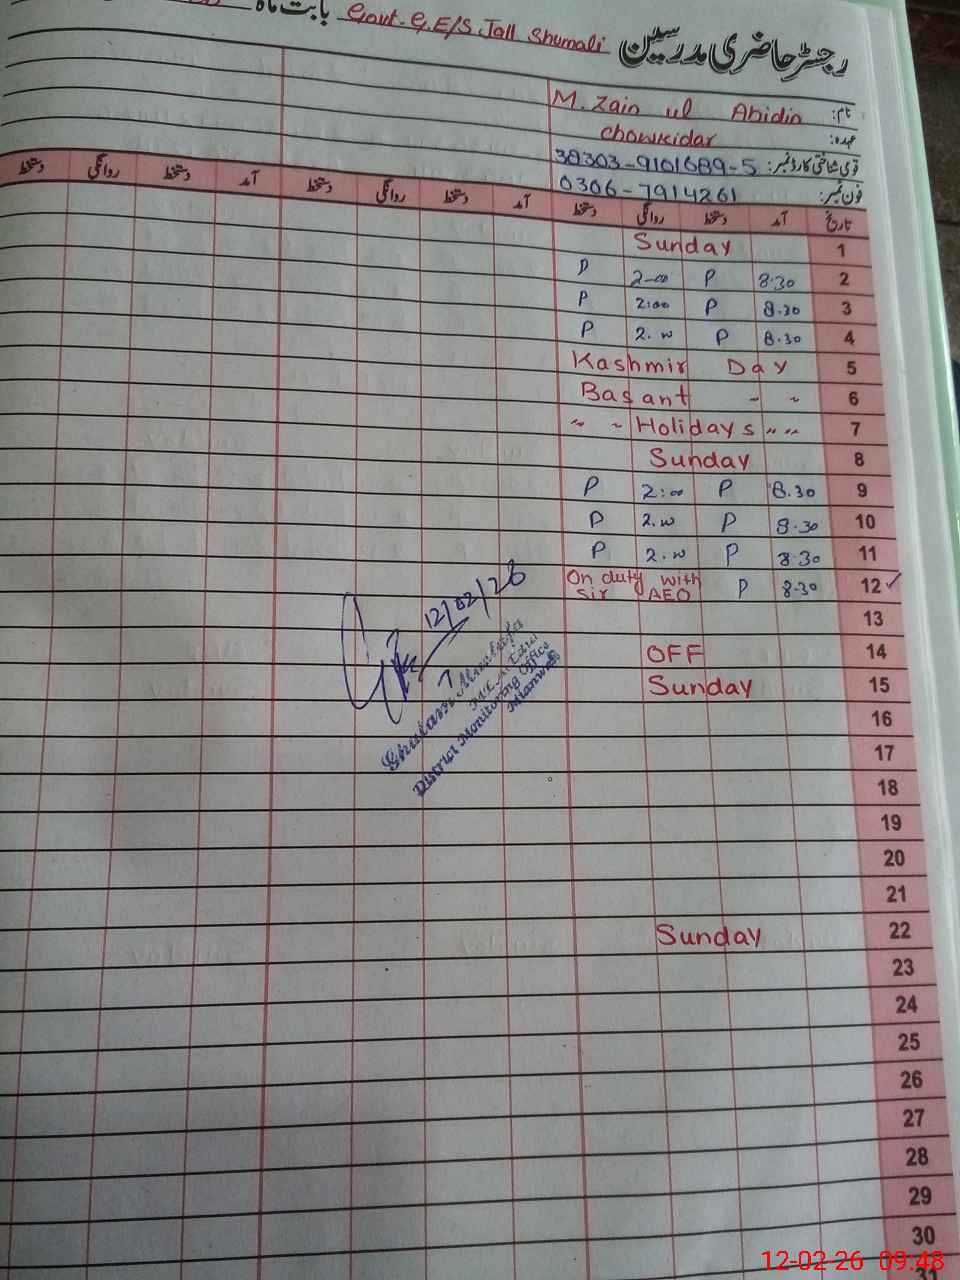 رجسٹر حاضری مدرسین Govt. G.E/S. Jall Shumali بابت ماہ
نام: M. Zain ul Abidin
عہدہ: Chowkidar
قومی شناختی کارڈ نمبر: 38303-9101689-5
فون نمبر: 0306-7914261
تاریخ آمد دستخط روانگی دستخط آمد دستخط روانگی دستخط آمد دستخط روانگی دستخط
1 Sunday
2 8.30 P 2-00 P
3 8.30 P 2:00 P
4 8.30 P 2.00 P
5 Kashmir Day
6 Basant " "
7 " " Holidays " "
8 Sunday
9 8.30 P 2:00 P
10 8.30 P 2.00 P
11 8.30 P 2.00 P
12 ✓ 8.30 P On duty with
Sir AEO
13
14 OFF
15 Sunday
16
17
18
19
20
21
22 Sunday
23
24
25
26
27
28
29
30
31
12/02/26
Ghulam Mustafa
District Monitoring Office
Mianwali
12-02-26 09:48